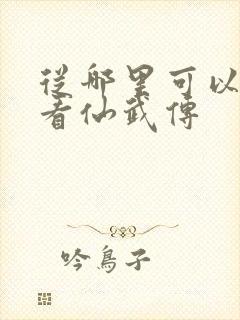 從哪里可以
看仙武傳
吟鳥子